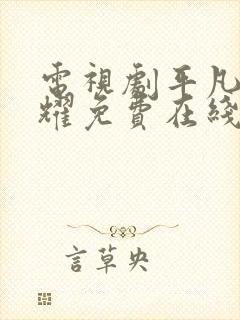 電視劇平凡
耀免費在綫
言草央